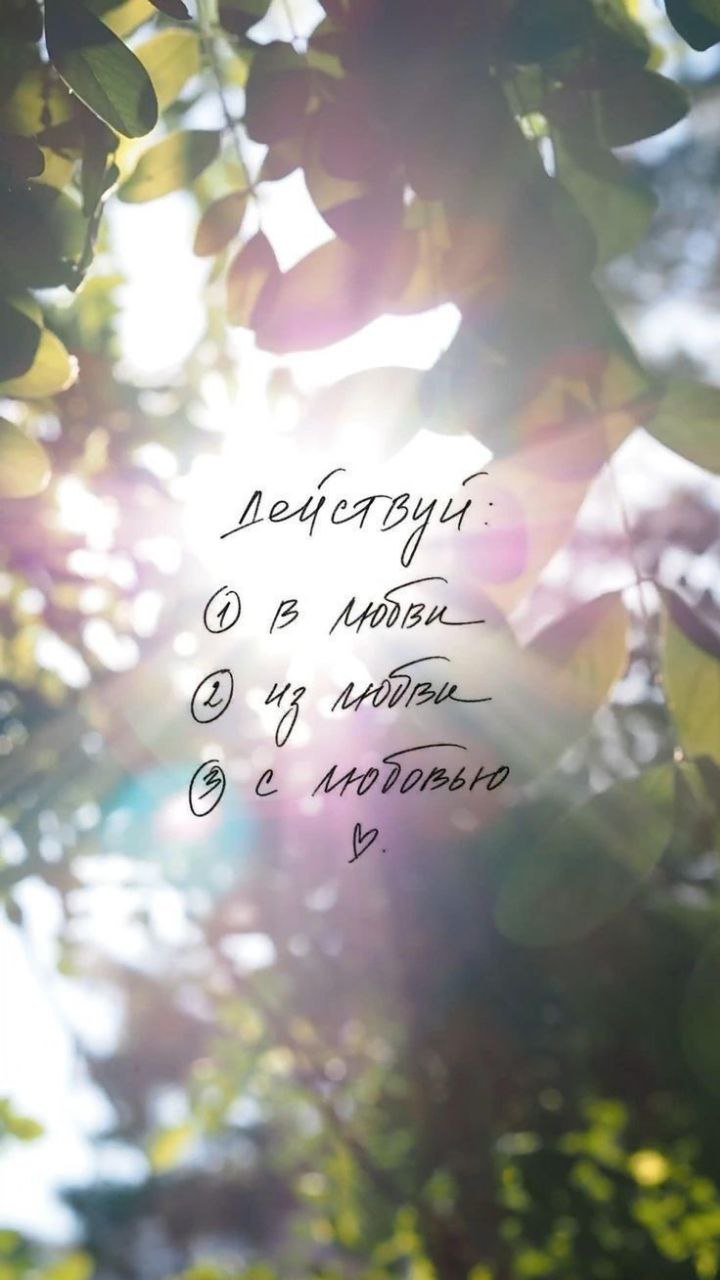 Действуй:
① в любви
② из любви
③ с любовью
♡.